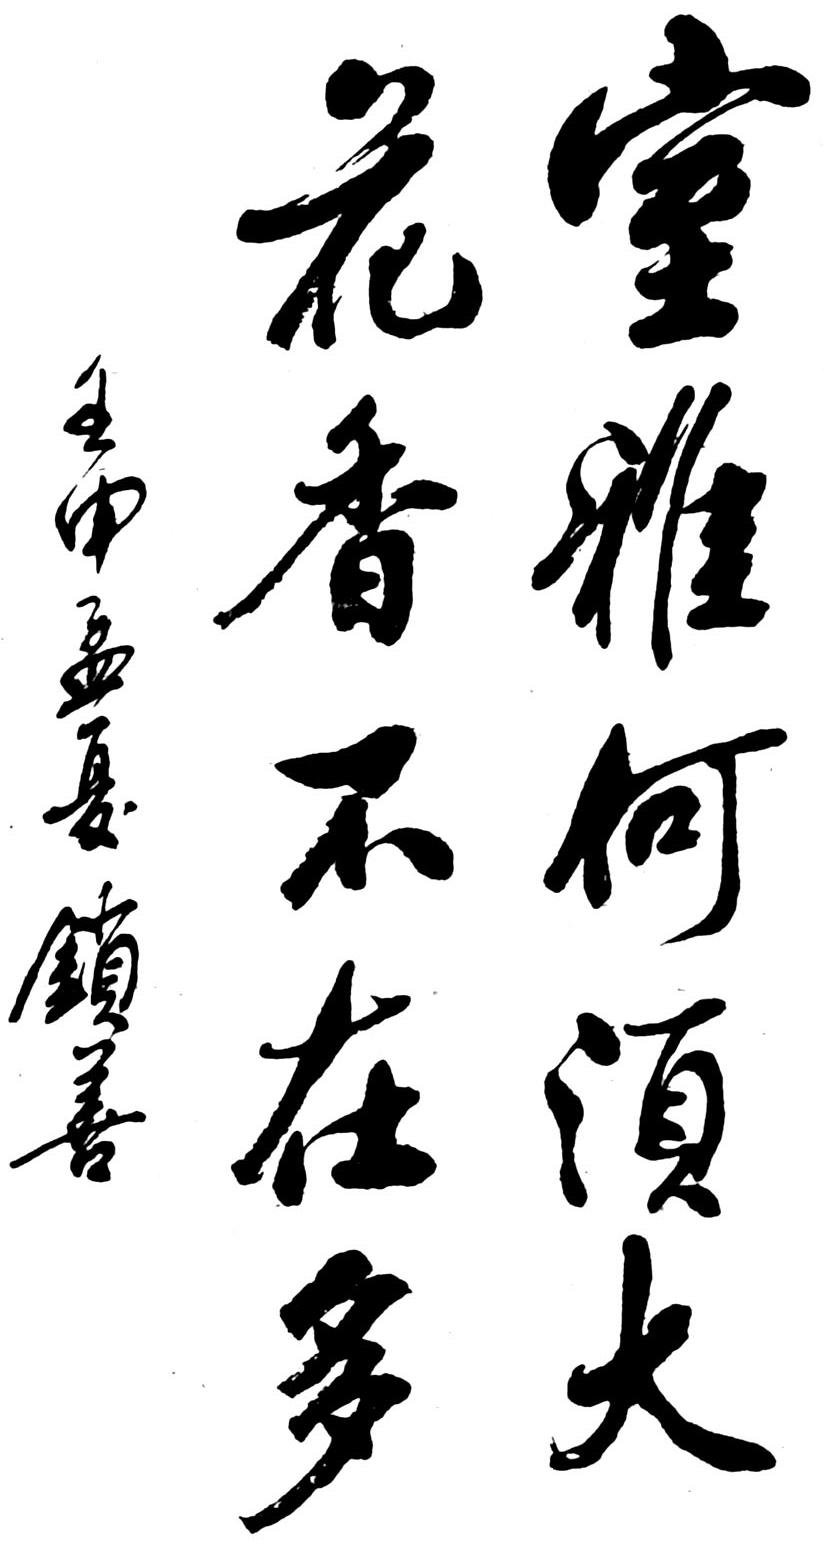 室雅何須大
花香不在多
壬申孟夏鎖善